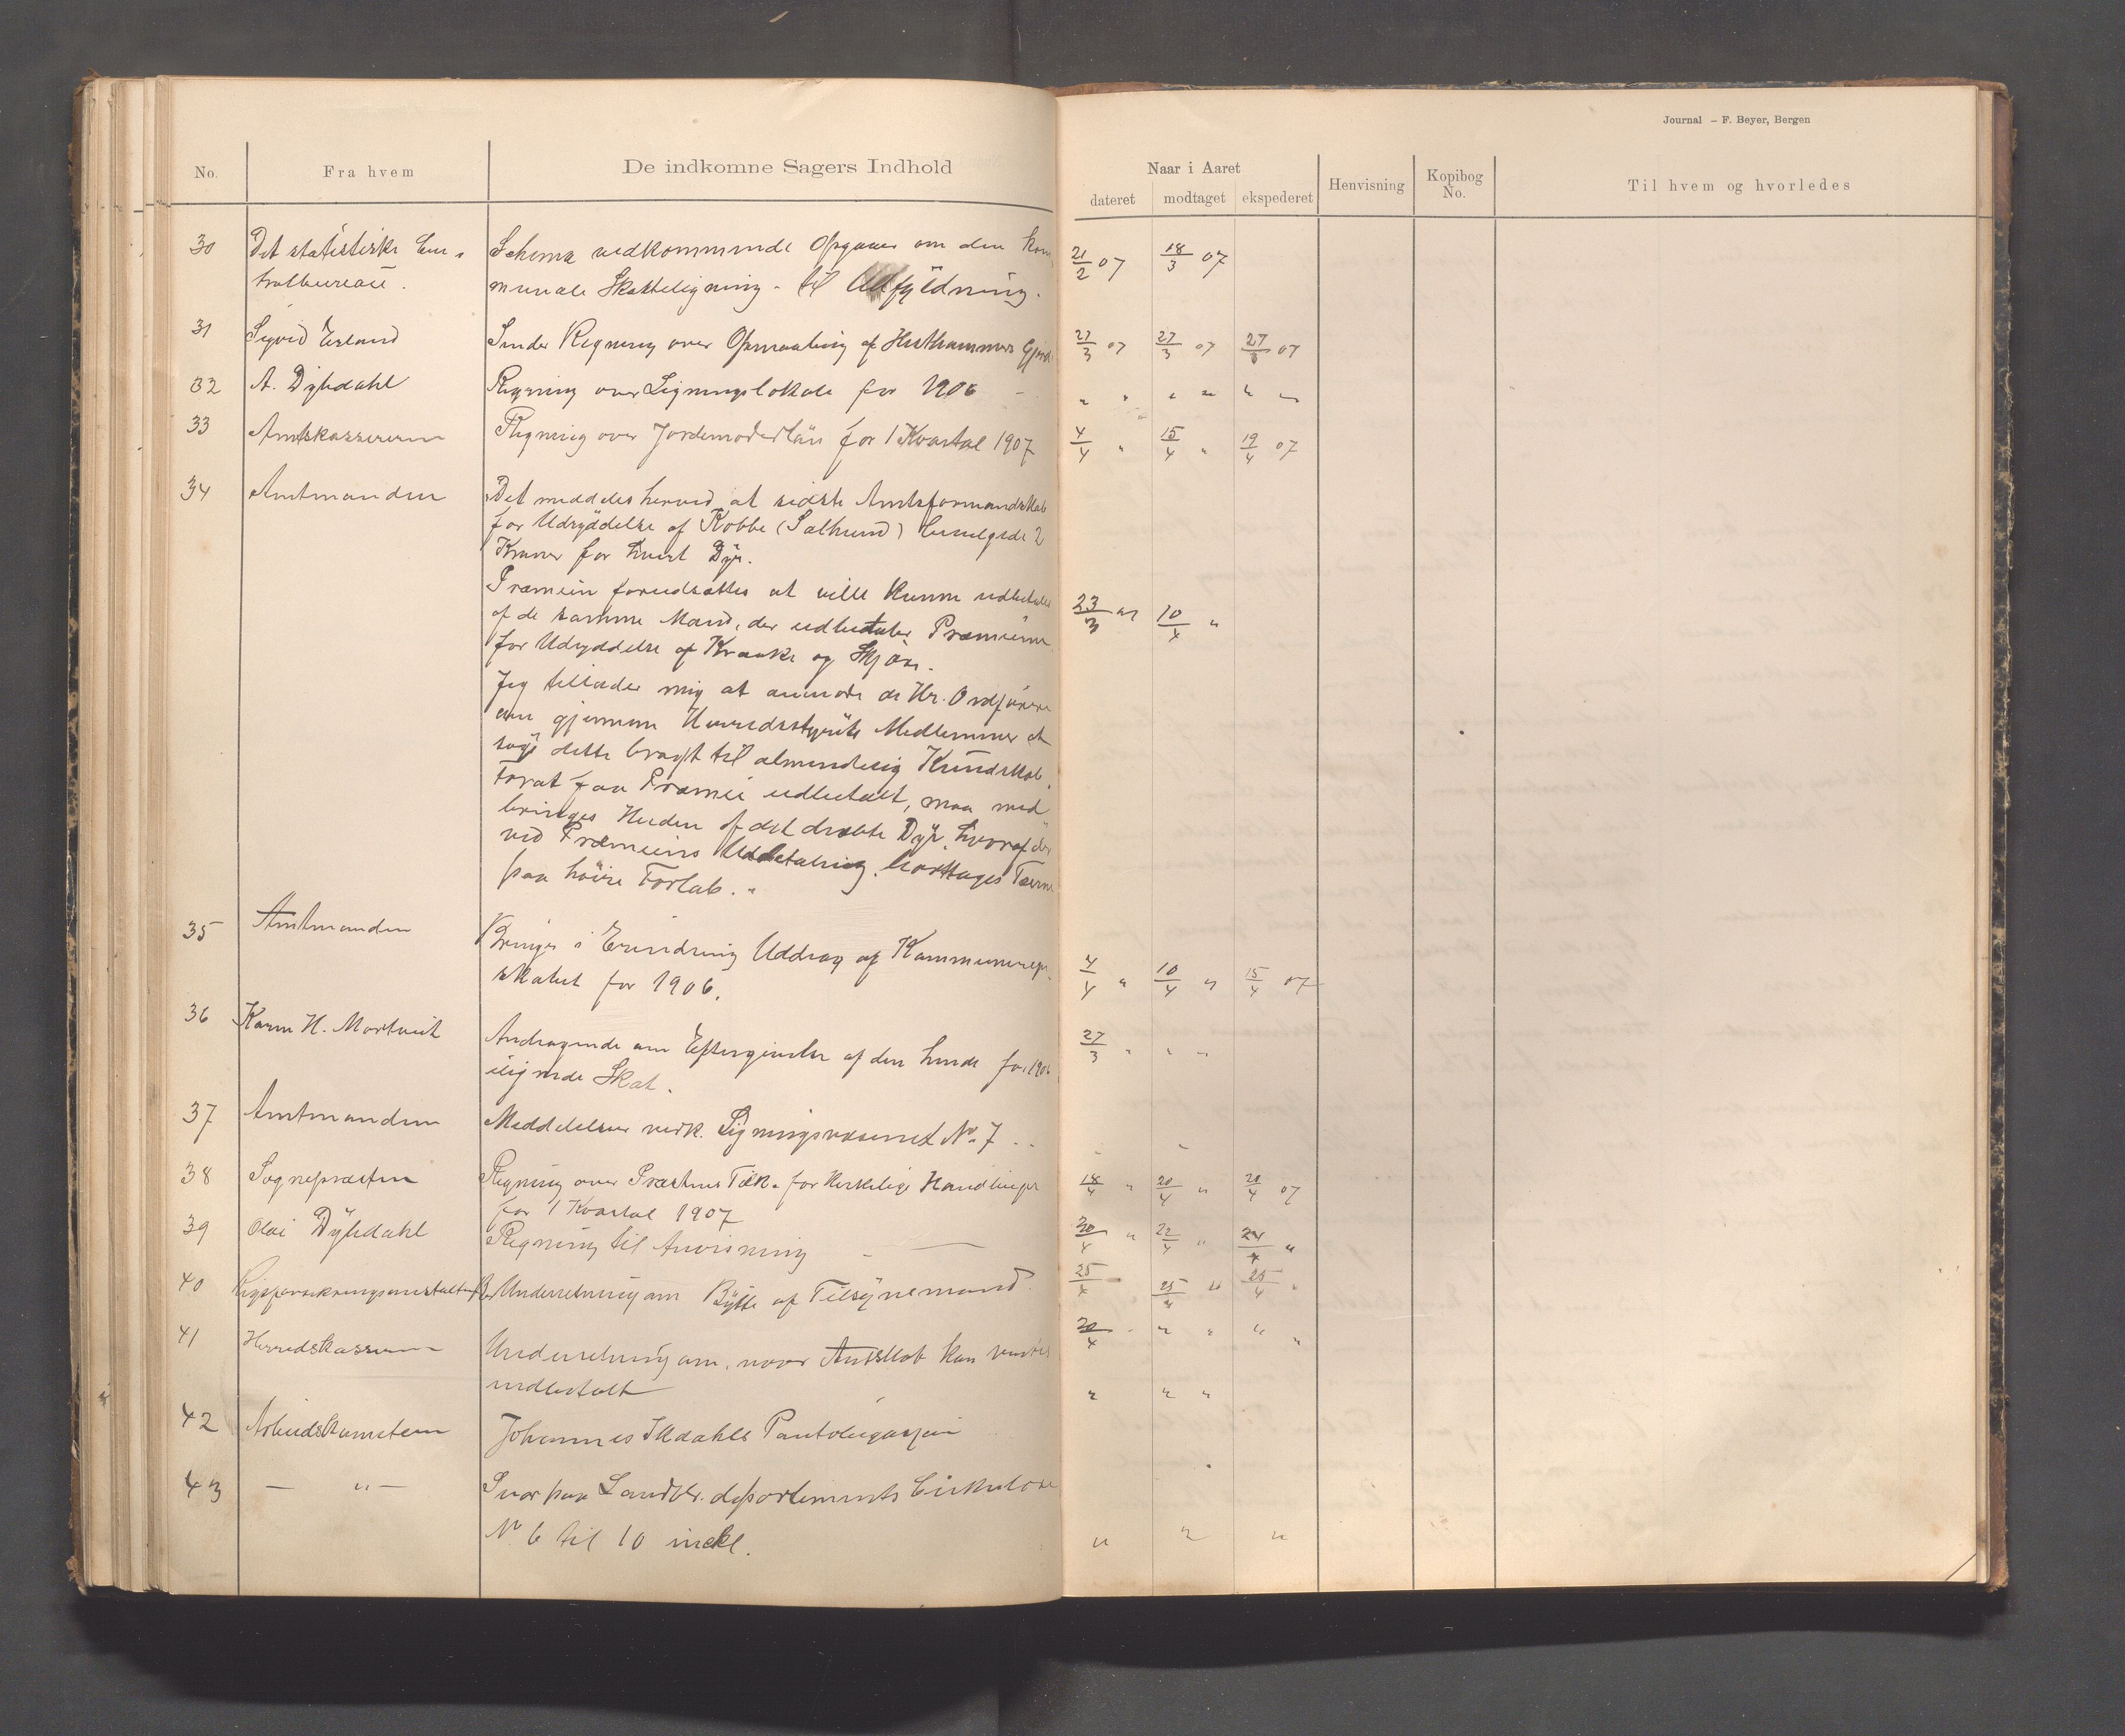 Journal – F. Beyer, Bergen
No. Fra hvem De indkomne Sagers Indhold Naar i Aaret dateret modtaget ekspederet Henvisning Kopibog No. Til hvem og hvorledes
30 Det statistiske Cen- Schema vedkommende Opgaver om den kom- 21/2 07 18/3 07
tralbureau. munale Skatteligning - til Udfyldning.
31 Sigvid Sender Regning over Opmaaling af 27/3 07 27/3 07 27/3 07
32 A. Dybdahl Regning over Ligningslokale for 1906 - " " " " " "
33 Amtskassereren Regning over Jordemoderløn for 1 Kvartal 1907 4/4 " 15/4 " 19/4 07
34 Amtmanden Det meddeles herved, at sidste Amtsformandskab
for Udryddelse af Kobbe (Sælhund) bevilgede 2
Kroner for hvert Dyr.
Præmien forudsættes at ville kunne udbetales 23/3 07 10/4 "
af de samme Mænd, der udbetaler Præmierne
for Udryddelse af Kraake og Skjøre.
Jeg tillader mig at anmode de Hr. Ordførere
om gjennem Herredsstyrets Medlemmer at
søge dette bragt til almindelig Kundskab.
For at faa Præmie udbetalt, maa med-
bringes Huden af det dræbte Dyr, hvoraf der
ved Præmiens Udbetaling borttages Tæerne
paa høire Forlab. "
35 Amtmanden Bringer i Erindring Uddrag af Kommuneregn- 4/4 " 10/4 " 15/4 07
skabet for 1906.
36 Karen H. Mortveit Andragende om Eftergivelse af den hende for 1906 27/3 " " "
ilignede Skat.
37 Amtmanden Meddelelser vedk. Ligningsvæsenet No 7 - - " "
38 Sognepræsten Regning over Præstens Tilk. for kirkelige Handlinger 18/4 " 20/4 " 20/4 07
for 1 Kvartal 1907
39 Olai Dybdahl Regning til Anvisning - — 20/4 " 22/4 " 24/4 "
40 Rigsforsikringsanstalten Underretning om Bytte af Tilsynsmand. 25/4 25/4 " 25/4 "
41 Herredskassereren Underretning om, naar Amtsskat kan ventes 20/4 " " " " "
indbetalt " " "
42 Johannes Pantobligasjon
43 — " — Svar paa Landbr. departements Cirkulære
No 6 til 10 inkl. " " "